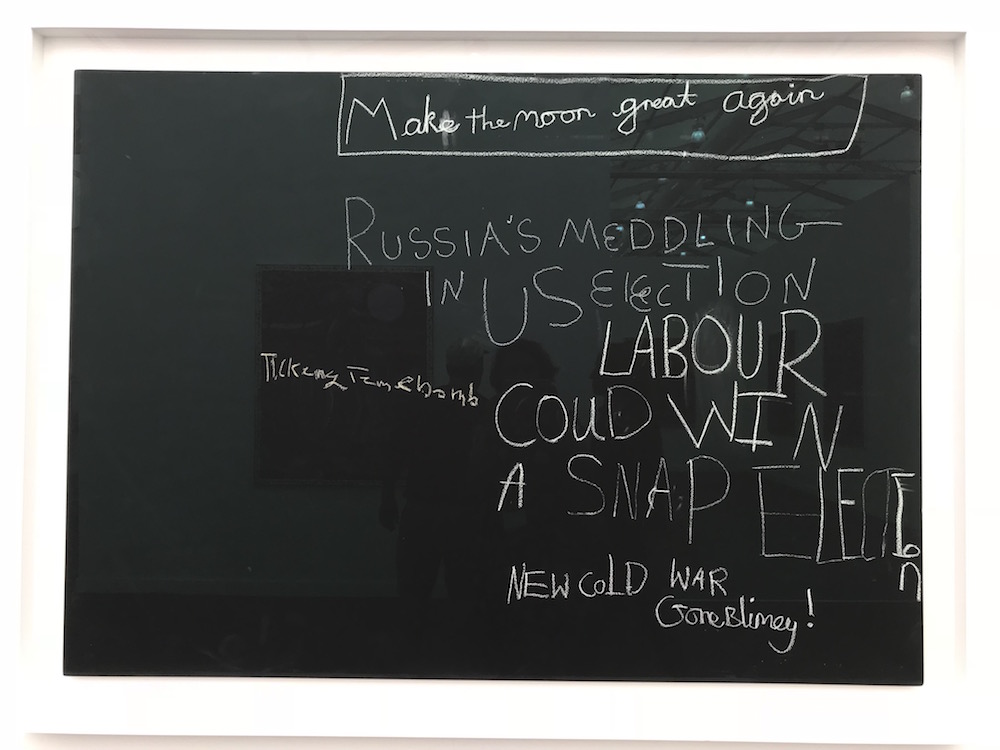 Make the moon great again
RUSSIA'S MEDDLING
IN US ElecTION
LABOUR
COUD WIN
A SNAP ELECTION
TICKeng Temebomb
NEW COLD WAR
GoreBlimey!